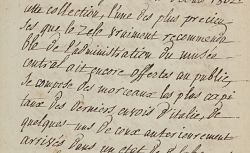 une collection, l'une des plus precieu-
ses que le zele vraiment recommenda
ble de l'administration du musée
central ait encore offertes au public
se compose des morceaux les plus capi
taux des derniers envois d'italie, de
quelques uns de ceux anterieurement
arrivés dans un etat de